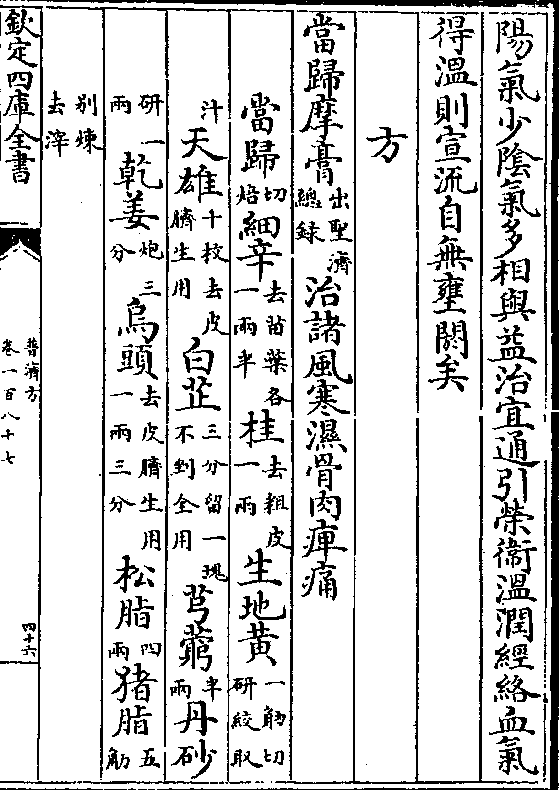 陽氣少陰氣多相與益治宜通引榮衞溫潤經絡血氣
得溫則宣流自無壅閼矣
方
當歸摩膏出聖濟總録治諸風寒濕骨肉痺痛
當歸切焙細辛去苗葉各一兩半桂去粗皮一兩生地黃一觔切研絞取
汁天雄十枚去皮臍生用白芷三分留一塊不剉全用芎藭半兩丹砂
研一兩乾姜炮三分烏頭去皮臍生用一兩三分松脂四兩猪脂五觔
别煉去滓
欽定四庫全書
普濟方
卷一百八十七
四十六